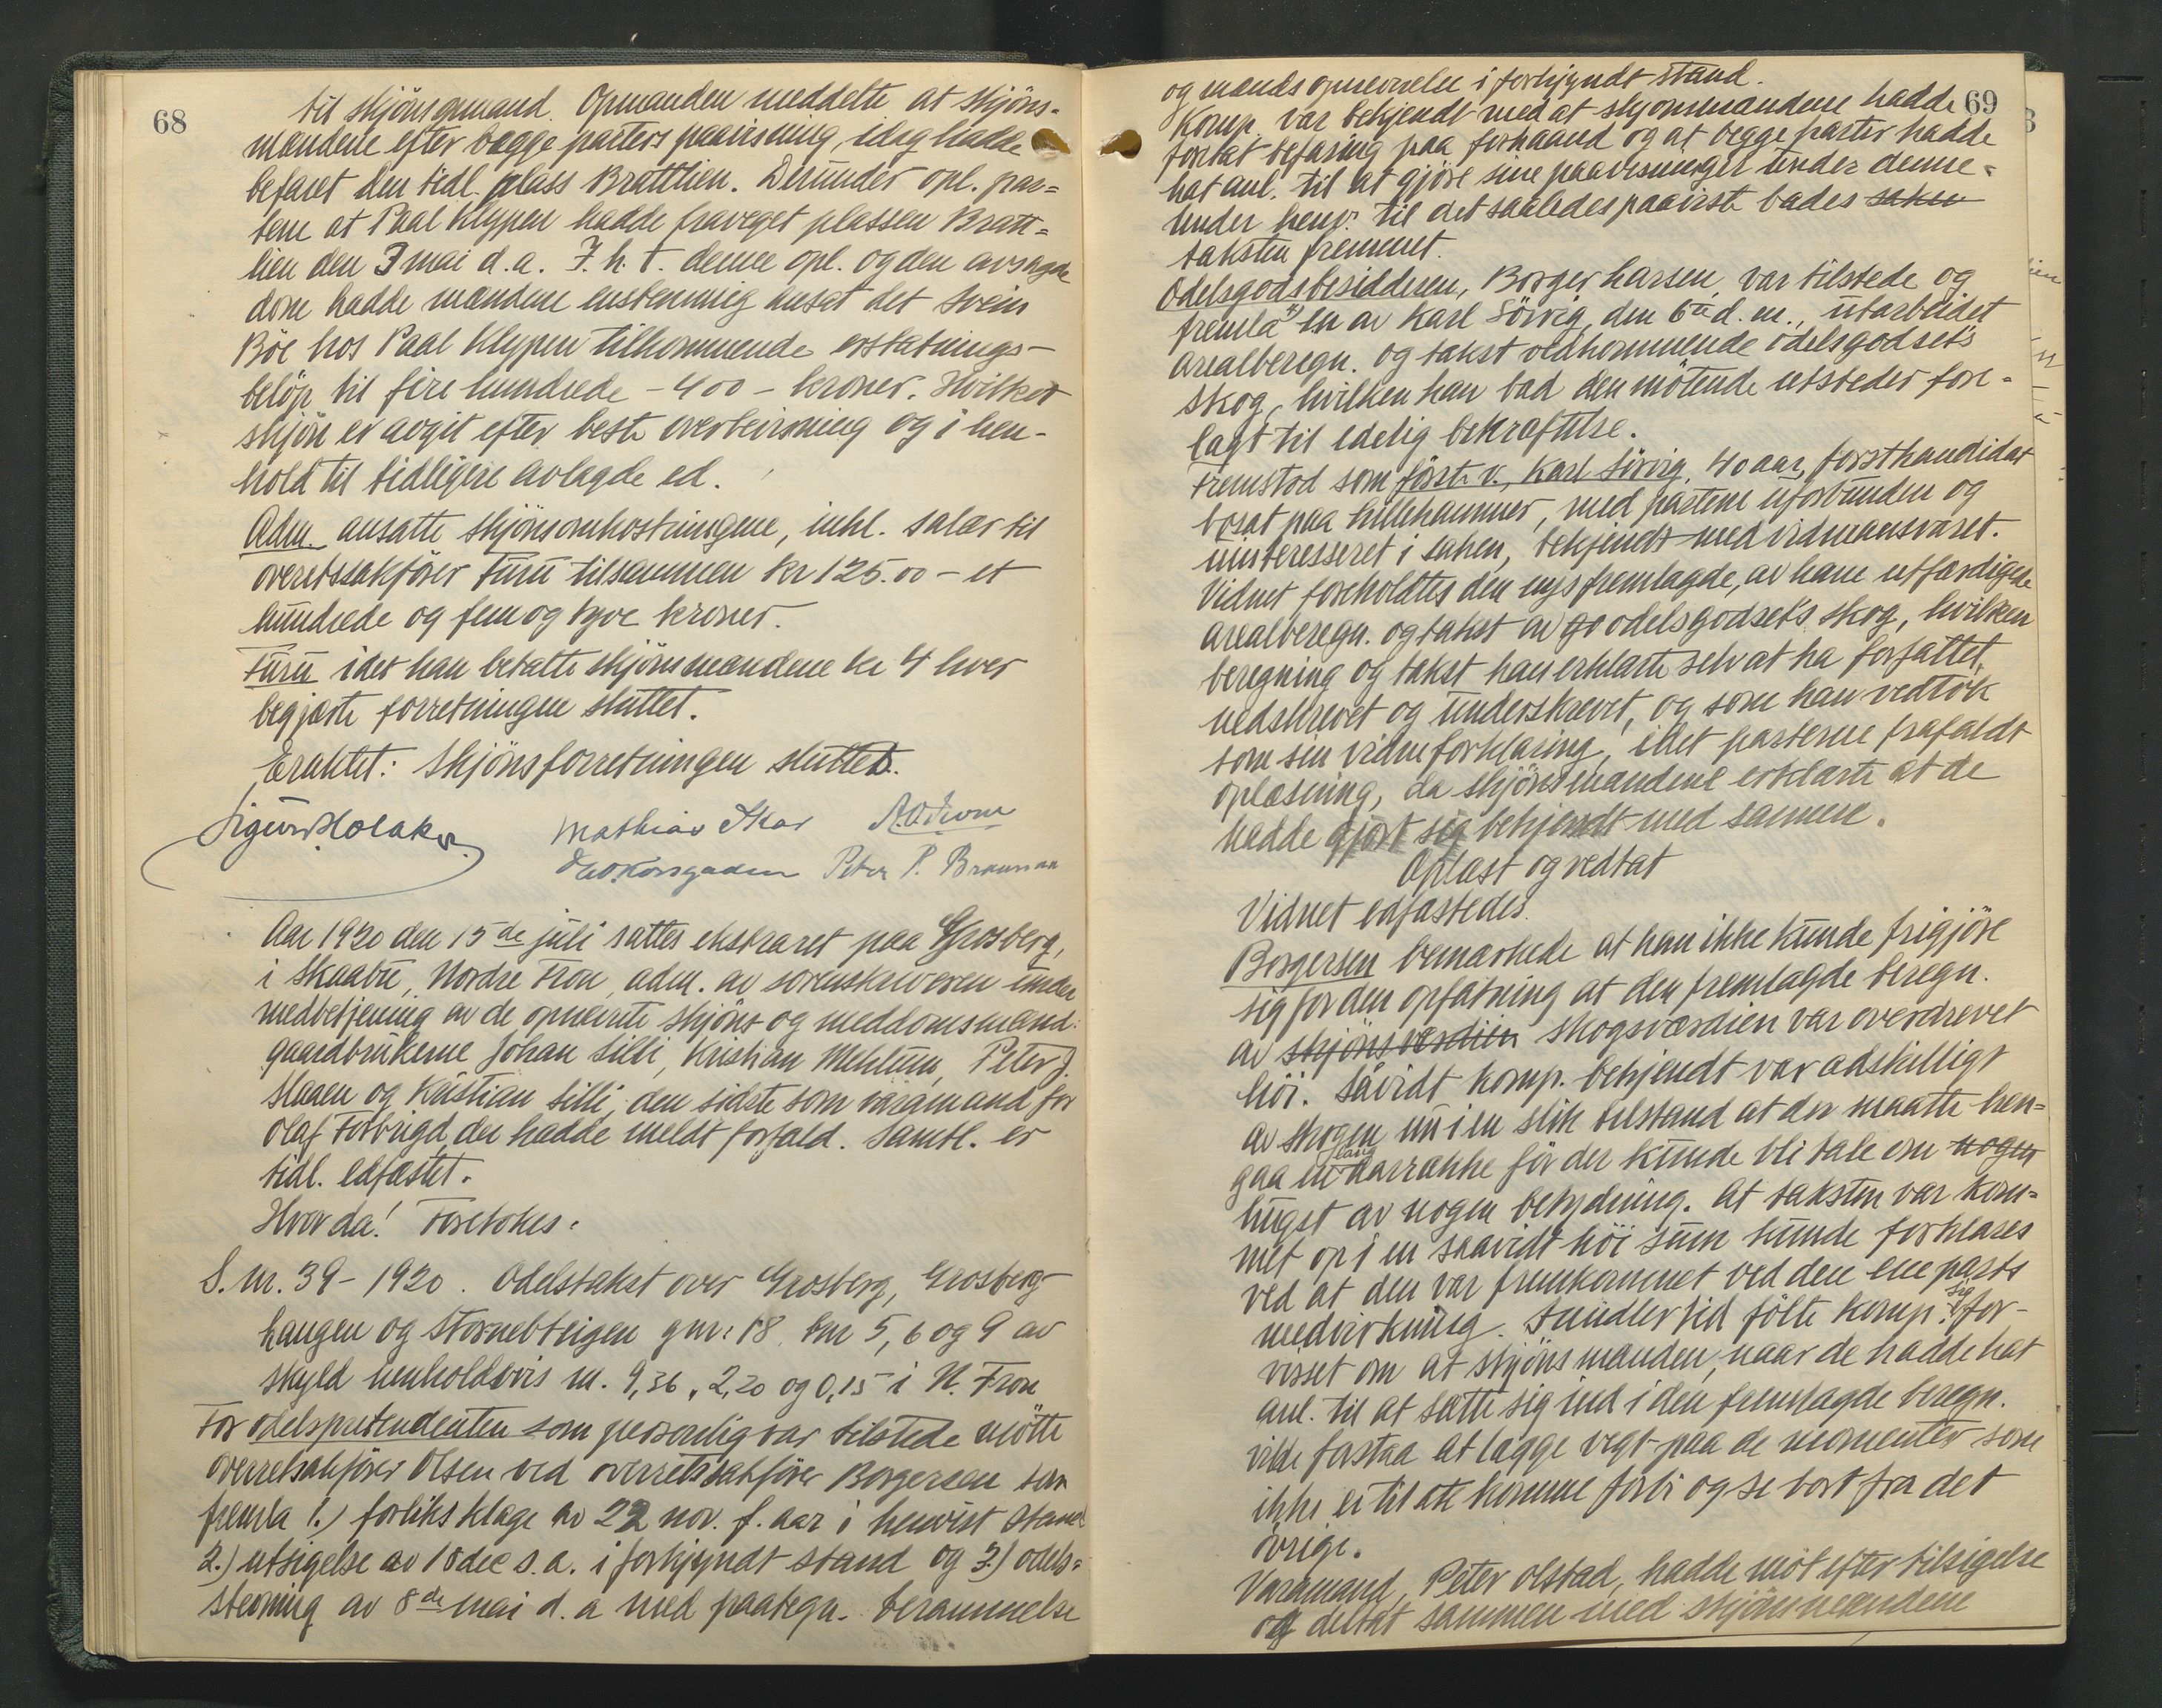 68
til skjönsopmand. Opmanden meddelte at skjöns-
mændene efter begge parters paavisning, idag hadde
befaret den tidl. plass Brattlien. Derunder opl. par=
tene at Paal Klypen hadde fraveget plassen Bratt=
lien den 3 mai d.a. I.h.t. denne opl. og den avsagde
dom hadde mændene enstemmig ansat det Svein
Böe hos Paal Klypen tilkommende erstatnings-
belöp til fire hundrede - 400 - kroner. Hvilket
skjön er avgit efter beste overbevisning og i hen-
hold til tidligere avlagde ed.
Adm. ansatte skjönsomkostningene, inkl. salær til
overetssakförer Furu tilsammen kr 125.00 - et
hundrede og fem og tyve kroner.
Furu idet han betalte skjönsmændene kr 4 hver
begjærte forretningen sluttet.
Eraktet: Skjönsforretningen sluttet.
Sigurd Holaker Mathias Skar
Peter P.
Aar 1920 den 15de juli sattes ekstraret paa Grosberg,
i Skaabu, Nordre Fron, adm. av sorenskriveren under
medbetjening av de opnævnte skjöns og meddomsmænd:
gaardbrukerne Johan Lilli, Kristian Mehlum, Peter J.
Slaaen og Kristian Lilli, den sidste som varamand for
Olaf Forbrigd, der hadde meldt forfald. Samtl. er
tidl. edfæstet.
Hvor da! Foretokes:
S. Nr. 39 - 1920. Odelstakst over Grosberg, Grosberg-
haugen og Stornebteigen gnr. 18 bnr 5, 6 og 9 av
skyld henholdsvis m. 9,36, 2,20 og 0,15 i N. Fron
For odelspretendenten som personlig var tilstede mötte
overretssakförer Olsen ved overretssakförer Borgersen som
fremla 1.) forliksklage av 22 nov. f. aar i henvist stand
2.) utsigelse av 18 dec s.a. i forkyndt stand og 3.) odels=
stevning av 8de mai d.a med paategn. berammelse
69
og mændsopnevnelse i forkyndt stand.
Komp. var bekjendt med at skjönsmændene hadde
foretat befaring paa forhaand og at begge parter hadde
hat anl. til at gjöre sine paavisninger under denne.
Under henv. til det saaledes paaviste bades saken
taksten fremmet.
Odelsgodsbesidderen, Borger Larsen, var tilstede og
fremla en av Karl Sörvig, den 6te d.m., utarbeidet
arealberegn. og takst vedkommende odelsgodsets
skog, hvilken han bad den mötende utsteder fore-
lagt til edelig bekræftelse.
Fremstod som förste v. Karl Sörvig, 40 aar, forstkandidat
bosat paa Lillehammer, med partene uforbunden og
uinteresseret i saken, bekjendt med vidneansvaret.
Vidnet foreholdtes den nys fremlagde, av ham utfærdigede
arealberegn. og takst av odelsgodsets skog, hvilken
beregning og takst han erklærte selv at ha forfattet,
nedskrevet og underskrevet, og som han vedtok
som sin vidneforklaring, idet parterne frafaldt
oplæsning, da skjönsmændene erklærte at de
hadde gjort sig bekjendt med samme.
Oplæst og vedtat
Vidnet edfæstedes.
Borgersen bemærkede at han ikke kunde frigjöre
sig for den opfatning at den fremlagde beregn.
av skjönsværdien skogsværdien var overdrevet
höi. Såvidt komp. bekjendt var adskilligt
av skogen nu i en slik tilstand at der maatte hen-
gaa en lang aarrække för der kunde bli tale om nogen
hugst av nogen betydning. At taksten var kom=
met op i en saavidt höi sum kunde forklares
ved at den var fremkommet ved den ene parts
medvirkning. Imidlertid fölte komp. sig for-
visset om at skjönsmændene, naar de hadde hat
anl. til at sætte sig ind i den fremlagde beregn.
vilde forstaa at lægge vegt paa de momenter som
ikke er til at komme forbi og se bort fra det
övrige.
Varamand, Peter Olstad, hadde möt efter tilsigelse
og deltat sammen med skjönsmændene